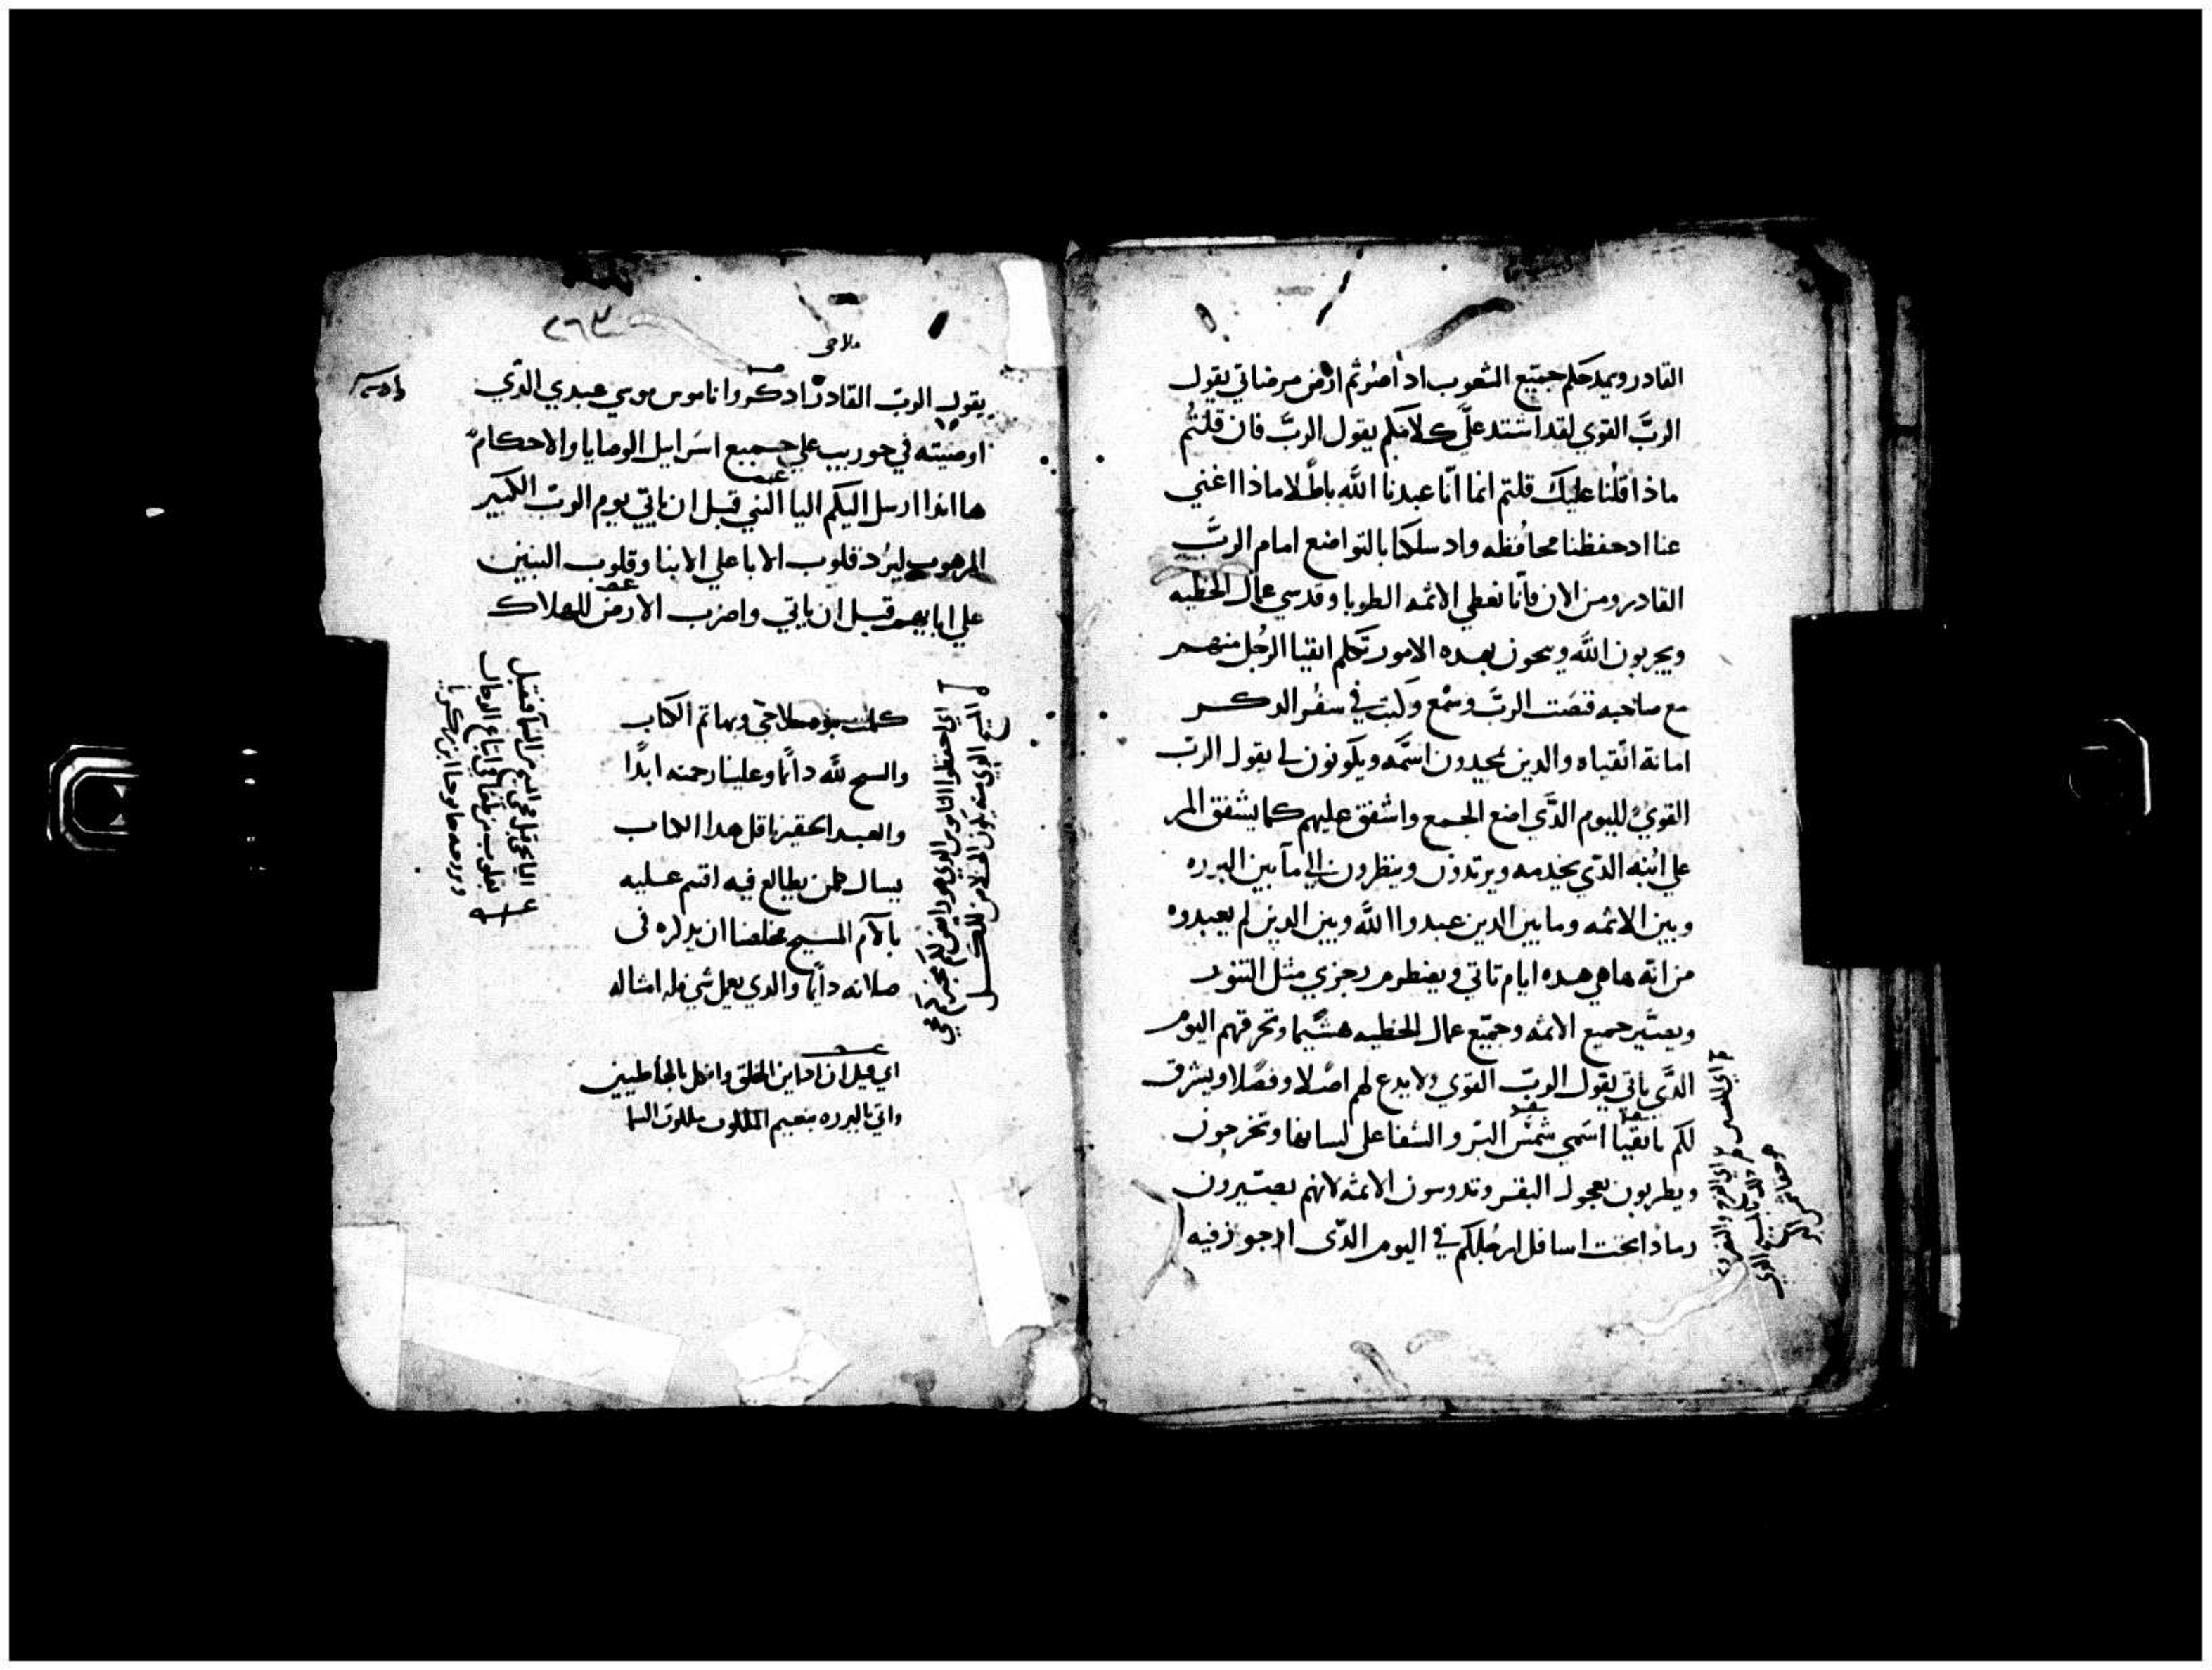 القادر ويمدحكم جميع الشعوب اد اصرتم ارض مرضاتي يقول
الربَّ القوي لقد اشتد علَّي كلامكم يقول الربَّ فان قلتُم
ماذا قُلنا عليك قلتم انما انّا عبدنا اللَّه باطلًا ماذا اغني
عنا اد حفظنا محافظه واد سلكنا بالتواضع امام الربَّ
القادر ومن الان فانّا نعطي الاثمه الطوبا وقدسي عمال الخطيه
ويجربون اللَّه وينحون بهده الامور تكلم اتقيا الرجُل منهم
مع صاحبه فنصَت الربَّ وسمْع وكتب في سفْر الدكر
امانة اتّقياه والدين يمجدون اسمَّه ويكونون لي يقول الربّ
القويُ لليوم الدَّي اضع الجمع واشفق عليهم كما يشفق المر
علي ابْنه الدَّي يخدمه ويرتدون وينظرون الي مآ بين البرره
وبين الاثمه وما بين الدين عبدوا اللَّه وبين الدين لم يعبدوه
من انّه ها هي هده ايام تاتي ويضطرم رجزي مثل التنور
ويصَّير جميع الاثمه وجميّع عمال الخطيه هشيمًا وتحرقهم اليوم
الدَّي ياتي يقول الربّ القوي ولا يدع لهم اصْلا وفصًلا ويشرق
لكم يا اتقيا اسَمي شمْس البّر والشفا علي لسانها وتخرجون
ويطربون بعجول البقر وتدوسون الاثمه لانهم يصّيرون
رمادا تحت اسافل ارجُلكم في اليوم الدّي اجوز فيه
٢٦٣
ملاخي
يقول الربّ القادر ادكروا ناموس موسي عبدي الدّي
اوصيته في حوريب علي جميع اسَرايل الوصايا والاحكام
ها اندا ارسل اليكم اليا النبي قبل ان ياتي يوم الربّ الكبير
المرهوب ليرُد قلوب الابا علي الابنا وقلوب البنين
علي ابايهم قبل ان ياتي واضرب الارض للهلاك
كملت نبوه ملاخي وبها تم الكتاب
والسبح للَّه دايمًا وعلينا رحمته ابدًا
والعبد الحقير ناقل هدا الكتاب
يسال كلمن يطالع فيه اقسم عليه
بالآم المسيح مخلصنا ان يدكره في
صلاته دايمًا والدي يعمل شي فله امثاله
اي قبل ان ادين الخلق وانكل بالخاطيين
واتي بالبرره بنعيم الملكوت ملكوت السما